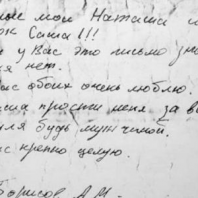 мои Наташа и
Саша!!!
у Вас это письмо зна
нет.
обоих очень люблю.
прости меня за в
будь мужчиной.
крепко целую.
Борисов А.М.